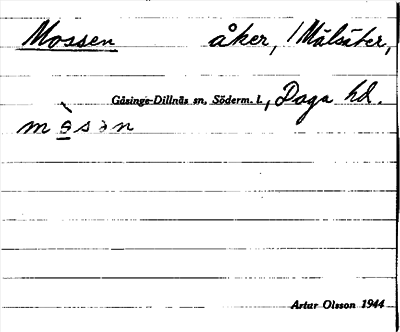 Mossen åker, / Målsäter,
Gåsinge-Dillnäs sn, Söderm. l., Daga hd.
m ò̱ s ə n
Artur Olsson 1944